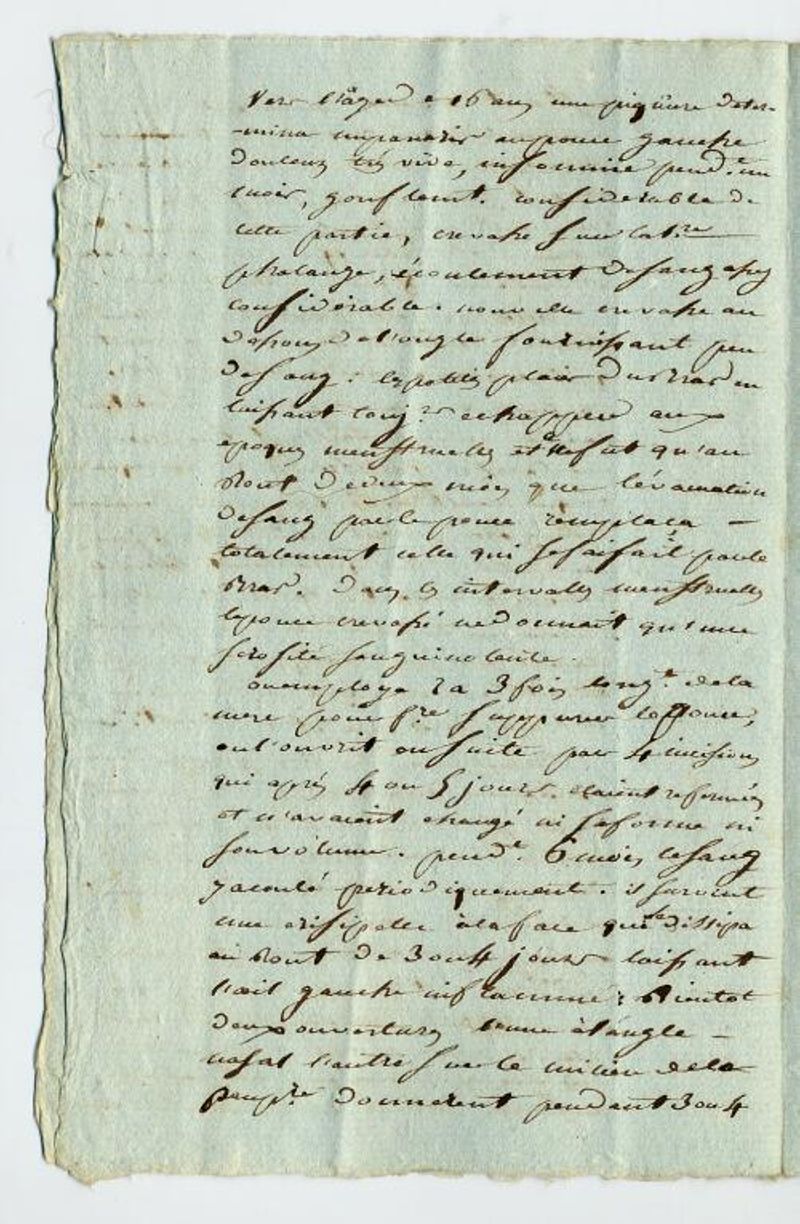 Vers l'âge de 16 ans une piqûure deter-
-mina un panaris au pouce gauche
douleur très vive, insomnie pend.t un
mois, gonflemt. considerable de
cette partie, crevasse sur la 1.re
phalange, écoulement de sang assez
considérable. nouvelle crevasse au
dessous de l'ongle fournissant peu
de sang: les petites plaies du bras en
laissant touj.rs echapper aux
epoques menstruelles et ce ne fut qu'au
bout de deux mois que l'évacuation
de sang par le pouce remplaça -
totalement celle qui se faisait par le
bras. Dans les intervalles menstruelles
le pouce crevassé ne donnait qu'une
serosité sanguinolente.
on employa 2 a 3 fois l'ong.t de la
mere pour f.re suppurer le pouce,
on l'ouvrit ensuite par 4 incisions
qui après 4 ou 5 jours étaient refermées
et n'avaient changé ni sa forme ni
son volume. pend.t 6 mois le sang
y a coulé periodiquement. il survint
une erisipelle à la face qui se dissipa
au bout de 3 ou 4 jours laissant
l'œil gauche inflammé: Bientot
deux ouvertures l'une à l'angle -
nasal l'autre sur le milieu de la
paup.re donnerent pendant 3 ou 4